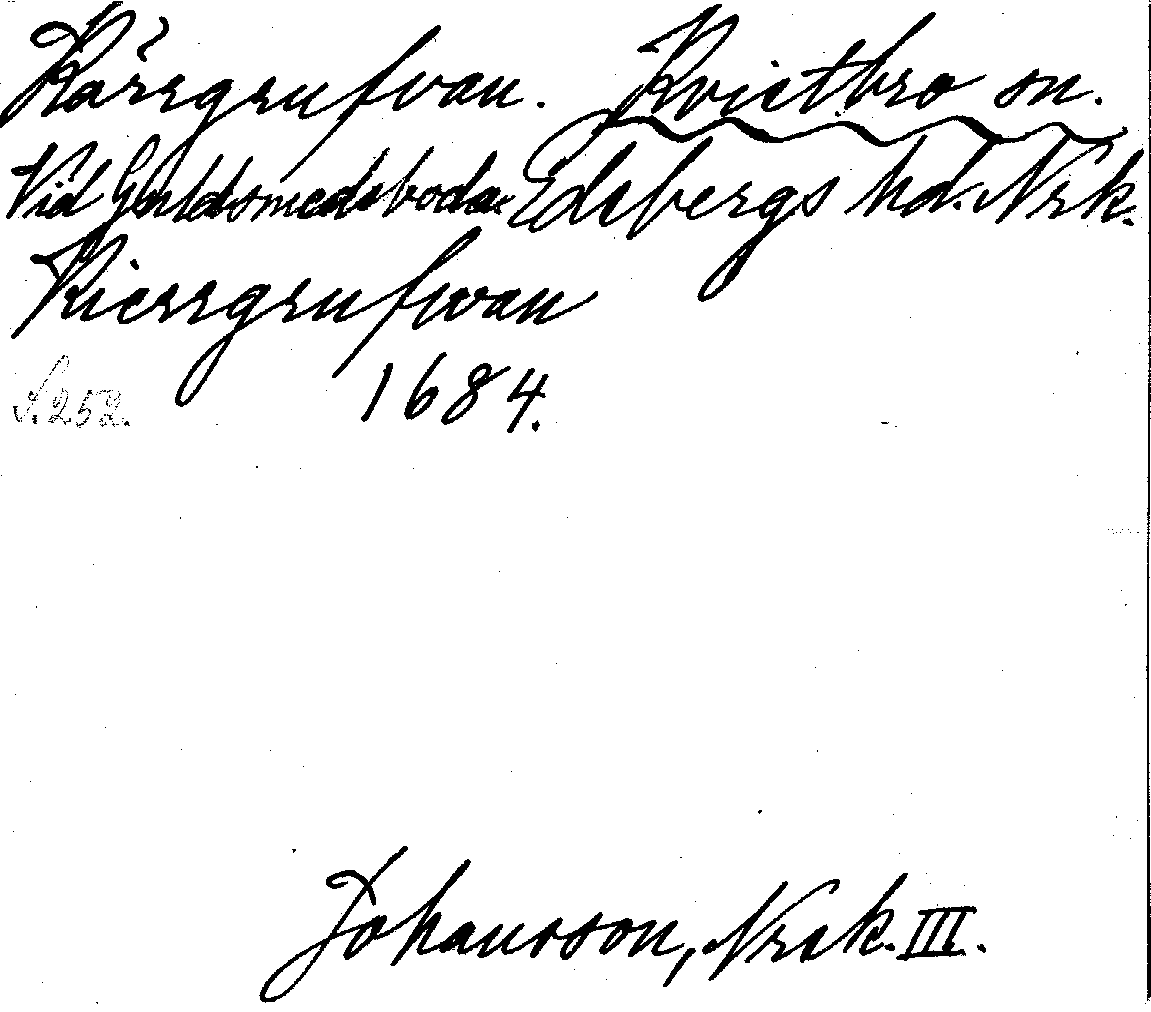 Kärrgrufvan. Kvistbro sn.
Vid Guldsmedsboda. Edsbergs hd. Nrk.
Kierrgrufwan
S. 252. 1684.
Johansson, Nrsk. III.